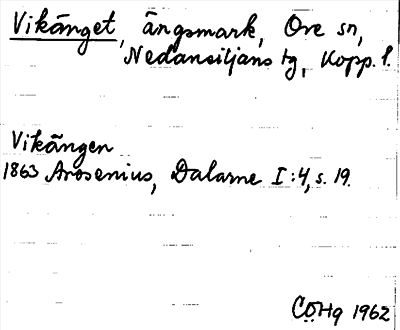 Vikänget, ängsmark, Ore sn,
Nedansiljans tg, Kopp. l.
Vikängen
1863 Arosenius, Dalarne I:4, s. 19.
COHg 1962